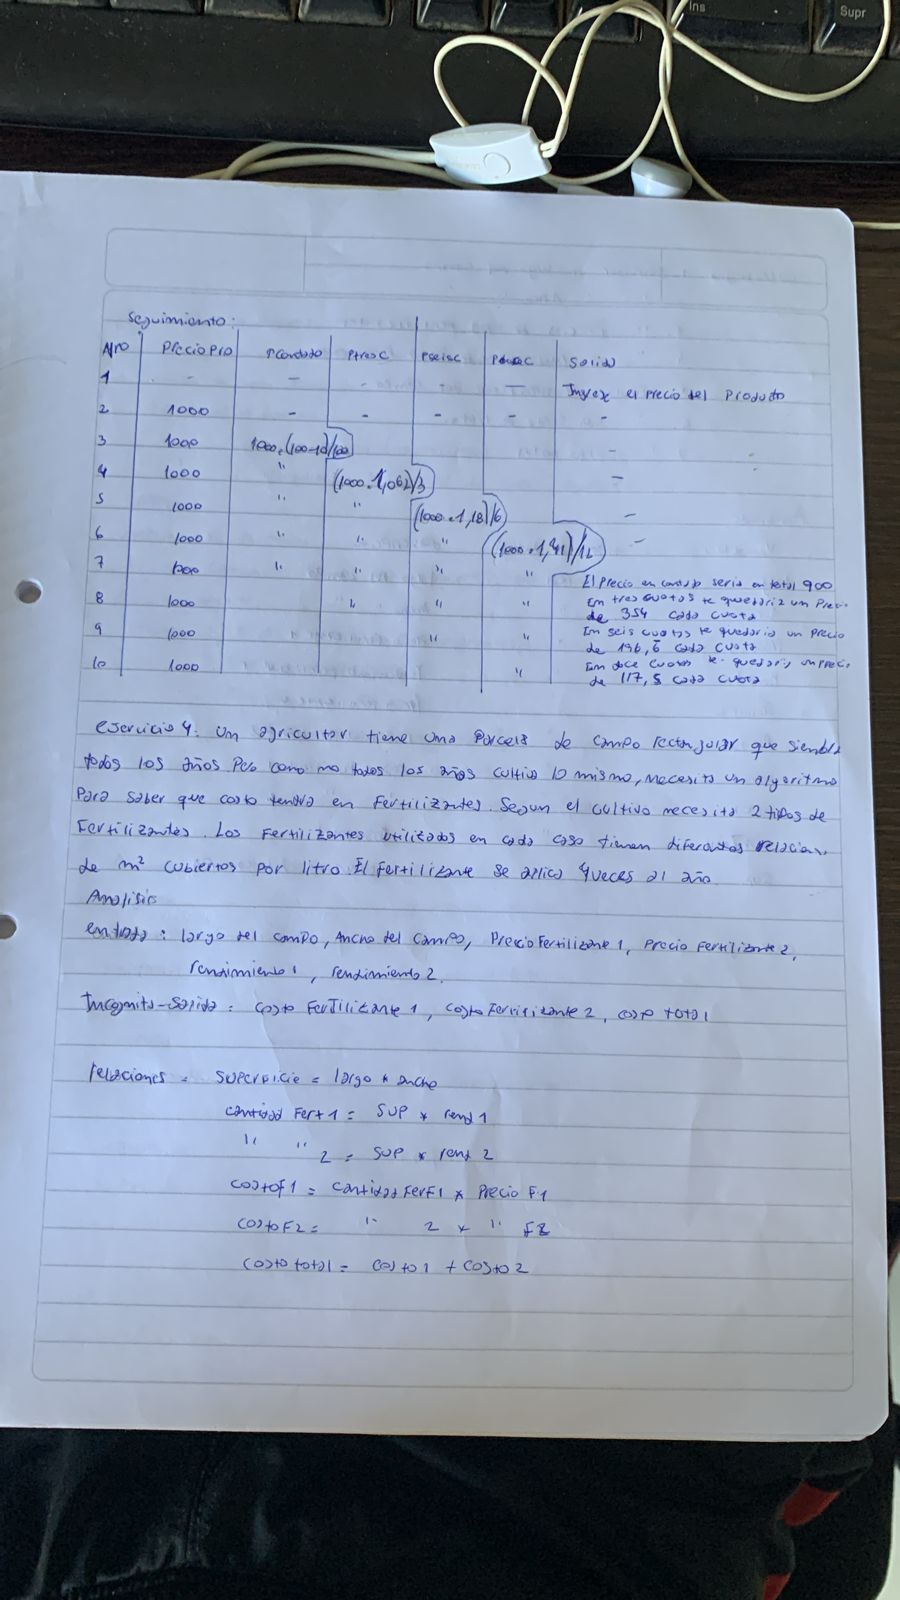 Ins
Supr
Seguimiento:
Nro PrecioPro Pcontado PtresC PseisC PdoceC Salida
1 - - - - Ingrese el precio del Producto
2 1000 - - - - -
3 1000 1000.(100-10)/100 -
4 1000 " (1000.1,062)/3 -
5 1000 " " (1000.1,18)/6 -
6 1000 " " " (1000.1,41)/12 -
7 1000 " " " " El Precio en contado seria en total 900
8 1000 " " " En tres cuotas te quedaria un Precio
de 354 cada cuota
9 1000 " " En seis cuotas te quedaria un precio
de 196,6 cada cuota
10 1000 " En doce cuotas te quedaria un precio
de 117,5 cada cuota
ejercicio 4: un agricultor tiene una Parcela de campo rectangular que siembra
todos los años Pero como no todos los años cultiva lo mismo, necesita un algoritmo
Para saber que costo tendra en Fertilizantes. Segun el cultivo necesita 2 tipos de
Fertilizantes. Los Fertilizantes utilizados en cada caso tienen diferentes relacion
de m² cubiertos por litro. El fertilizante se aplica 4 veces al año
Analisis
entrada: largo del campo, Ancho del campo, Precio Fertilizante 1, Precio Fertilizante 2,
rendimiento 1, rendimiento 2.
Incognita-Salida: costo Fertilizante 1, costo Fertilizante 2, costo total
relaciones = superficie = largo * ancho
cantidad Fert 1 = SUP * rend 1
" " 2 = SUP * rend 2
costoF1 = cantidad FerF1 * Precio F1
costo F2 = " 2 * " F2
costo total = costo 1 + costo 2